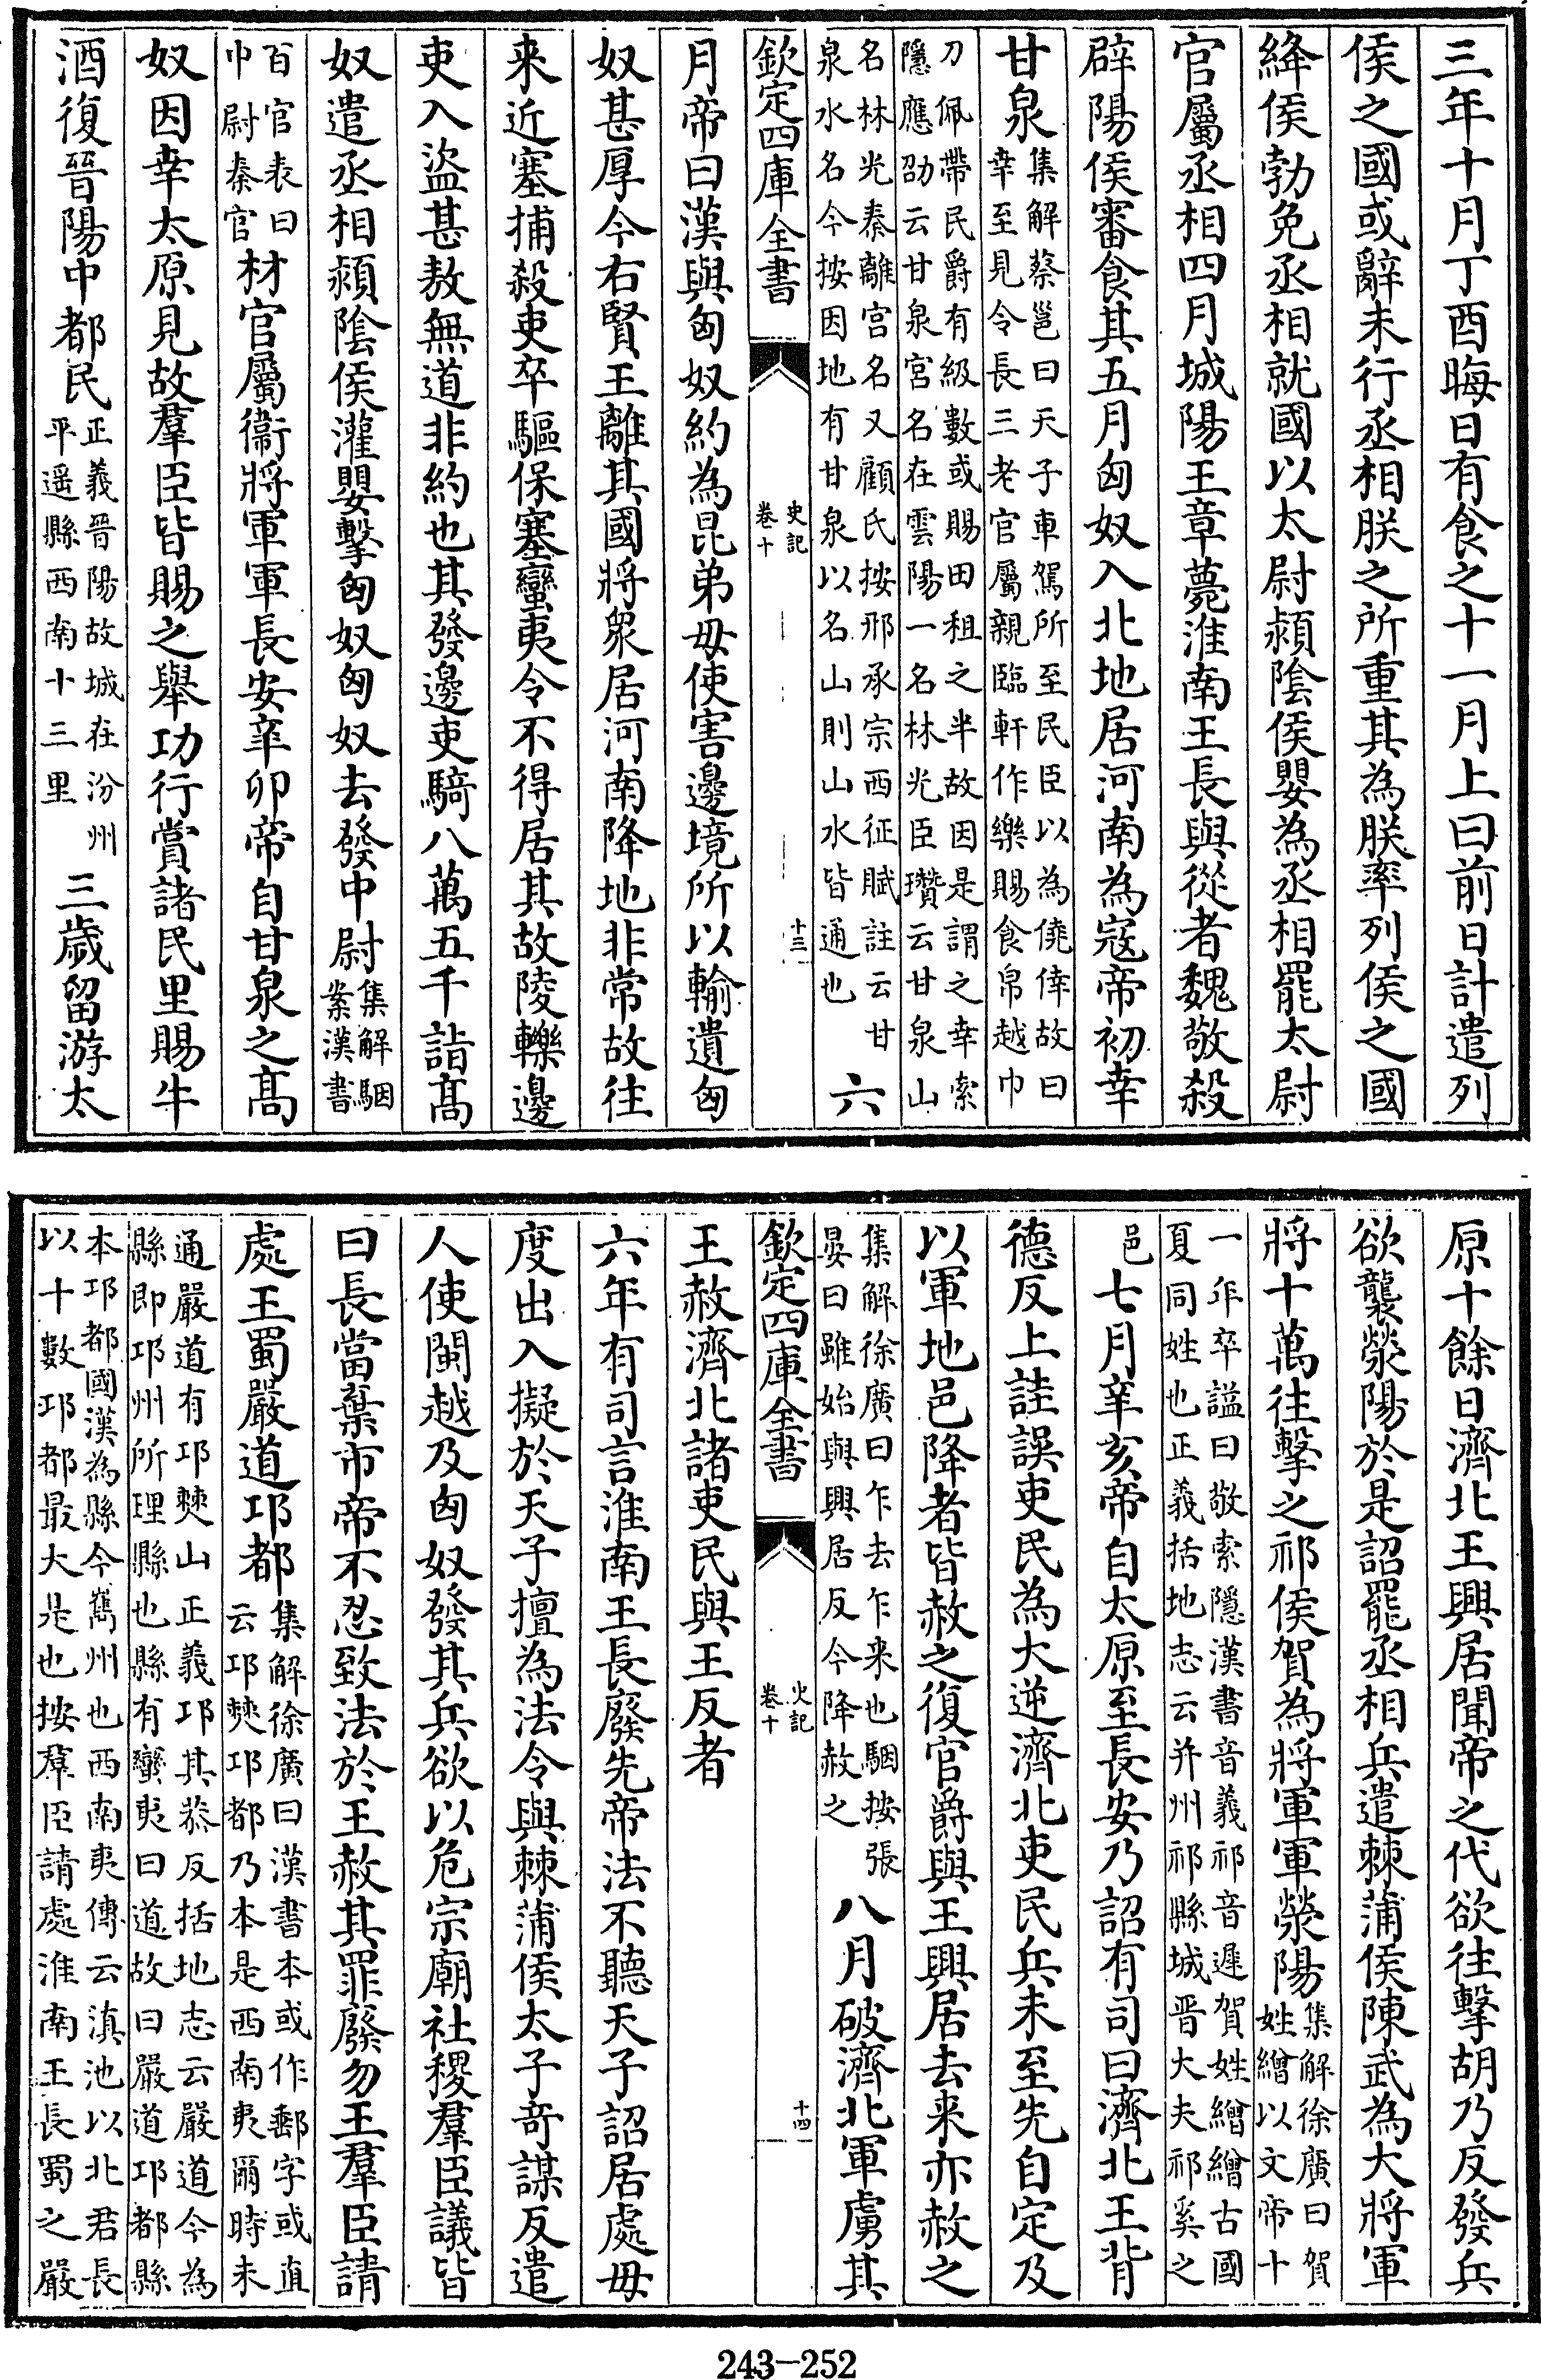 三年十月丁酉晦日有食之十一月上曰前日計遣列
侯之國或辭未行丞相朕之所重其為朕率列侯之國
絳侯勃免丞相就國以太尉潁陰侯嬰為丞相罷太尉
官屬丞相四月城陽王章薨淮南王長與從者魏敬殺
辟陽侯審食其五月匈奴入北地居河南為寇帝初幸
甘泉集解蔡邕曰天子車駕所至民臣以為僥倖故曰幸至見令長三老官屬親臨軒作樂賜食帛越巾
刀佩帶民爵有級數或賜田租之半故因是謂之幸索隱應劭云甘泉宮名在雲陽一名林光臣瓚云甘泉山
名林光秦離宮名又顧氏按邢承宗西征賦註云甘泉水名今按因地有甘泉以名山則山水皆通也六
欽定四庫全書
史記
卷十
十三
月帝曰漢與匈奴約為昆弟毋使害邊境所以輸遺匈
奴甚厚今右賢王離其國將衆居河南降地非常故往
来近塞捕殺吏卒驅保塞蠻夷令不得居其故陵轢邊
吏入盜甚敖無道非約也其發邊吏騎八萬五千詣髙
奴遣丞相潁陰侯灌嬰擊匈奴匈奴去發中尉集解駰案漢書
百官表曰中尉秦官材官屬衞將軍軍長安辛卯帝自甘泉之髙
奴因幸太原見故羣臣皆賜之舉功行賞諸民里賜牛
酒復晉陽中都民正義晉陽故城在汾州平遥縣西南十三里三歲留游太
原十餘日濟北王興居聞帝之代欲往擊胡乃反發兵
欲襲滎陽於是詔罷丞相兵遣棘蒲侯陳武為大將軍
將十萬往擊之祁侯賀為將軍軍滎陽集解徐廣曰賀姓繒以文帝十
一年卒謚曰敬索隱漢書音義祁音遲賀姓繒繒古國夏同姓也正義括地志云并州祁縣城晉大夫祁奚之
邑七月辛亥帝自太原至長安乃詔有司曰濟北王背
德反上詿誤吏民為大逆濟北吏民兵未至先自定及
以軍地邑降者皆赦之復官爵與王興居去来亦赦之
集解徐廣曰乍去乍来也駰按張晏曰雖始與興居反今降赦之八月破濟北軍虜其
欽定四庫全書
史記
卷十
十四
王赦濟北諸吏民與王反者
六年有司言淮南王長廢先帝法不聽天子詔居處毋
度出入擬於天子擅為法令與棘蒲侯太子竒謀反遣
人使閩越及匈奴發其兵欲以危宗廟社稷羣臣議皆
曰長當棄市帝不忍致法於王赦其罪廢勿王羣臣請
處王蜀嚴道邛都集解徐廣曰漢書本或作郵字或直云邛僰邛都乃本是西南夷爾時未
通嚴道有邛僰山正義邛其恭反括地志云嚴道今為縣即邛州所理縣也縣有蠻夷曰道故曰嚴道邛都縣
本邛都國漢為縣今嶲州也西南夷傳云滇池以北君長以十數邛都最大是也按羣臣請處淮南王長蜀之嚴
243-252